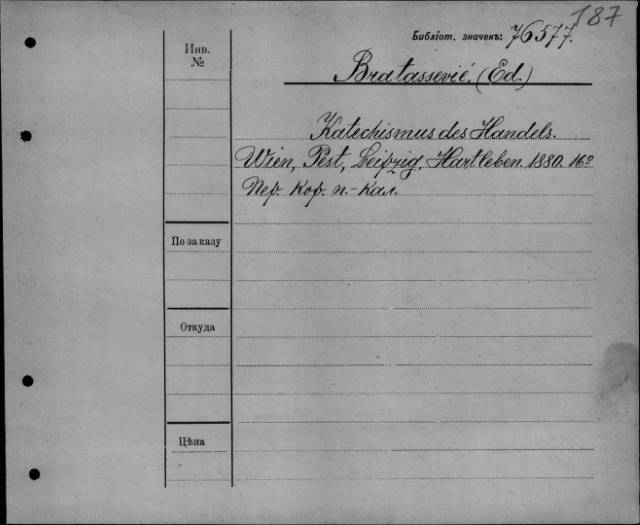 187
Библіот. значенъ: 76577.
Инв.
№
Bratassević, (Ed.)
Katechismus des Handels.
Wien, Pest, Leipzig, Hartleben. 1880. 16º
Пер. Кор. п.-кал.
По заказу
Откуда
Цѣна